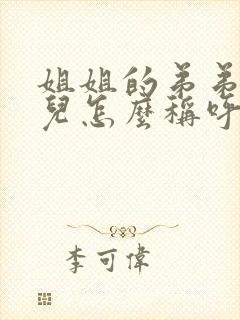 姐姐的弟弟
兒怎麼稱呼
李可偉